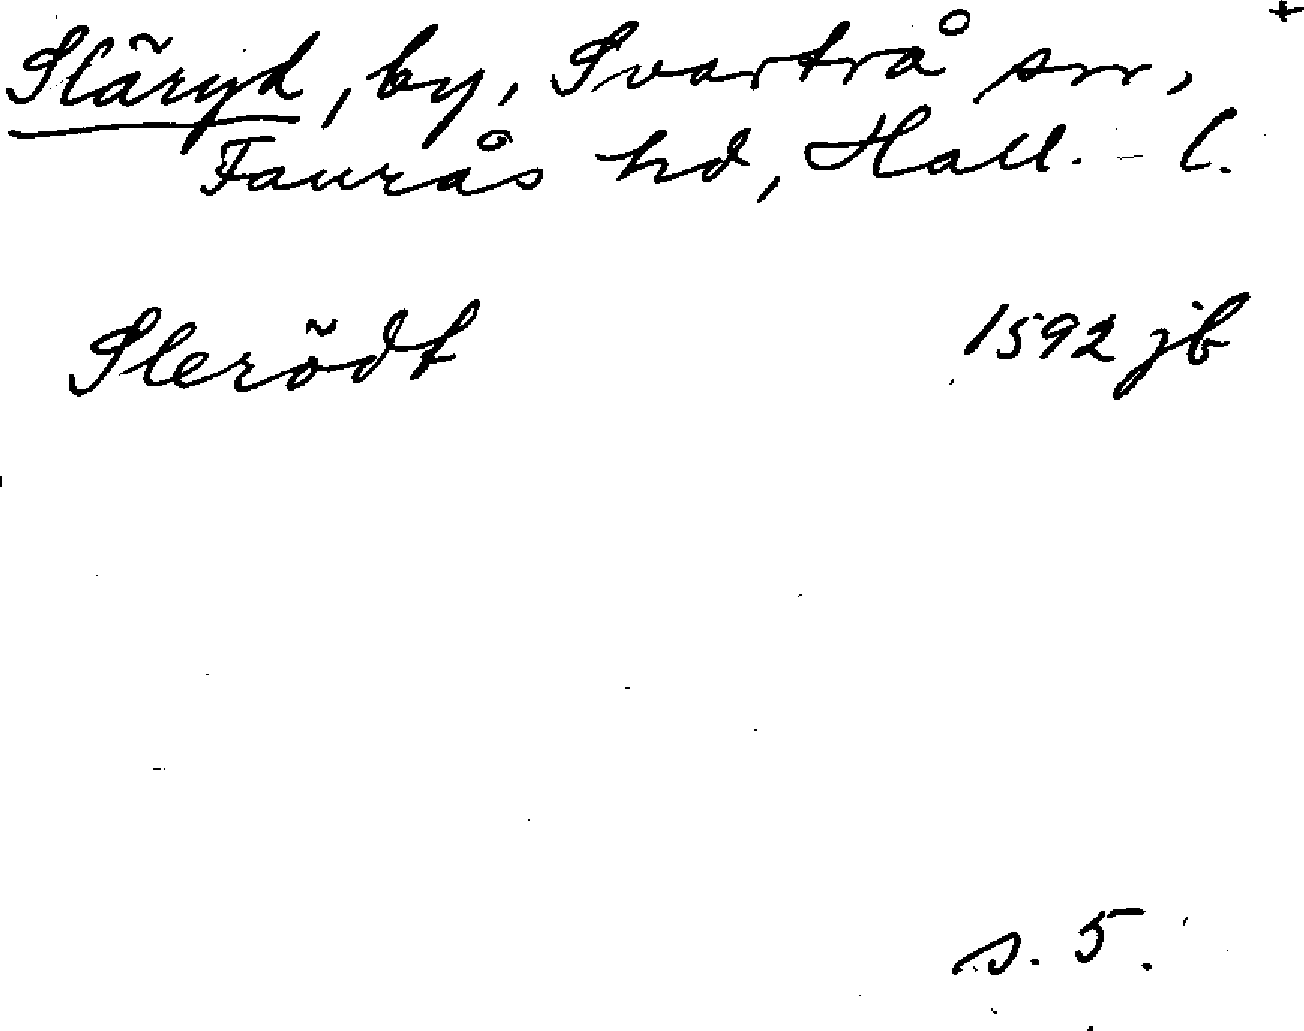 +
Släryd, by, Svartrå snr,
Faurås hd, Hall. - l.
Slerödt 1592 jb
s. 5.